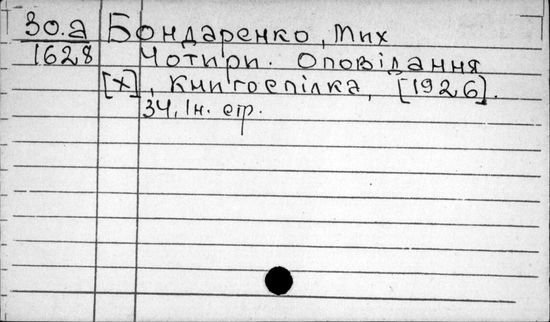 30.а Бондаренко, Мих
1628 Чотири. Оповідання
[X], Книгоспілка, [1926].
34, 1н. стр.